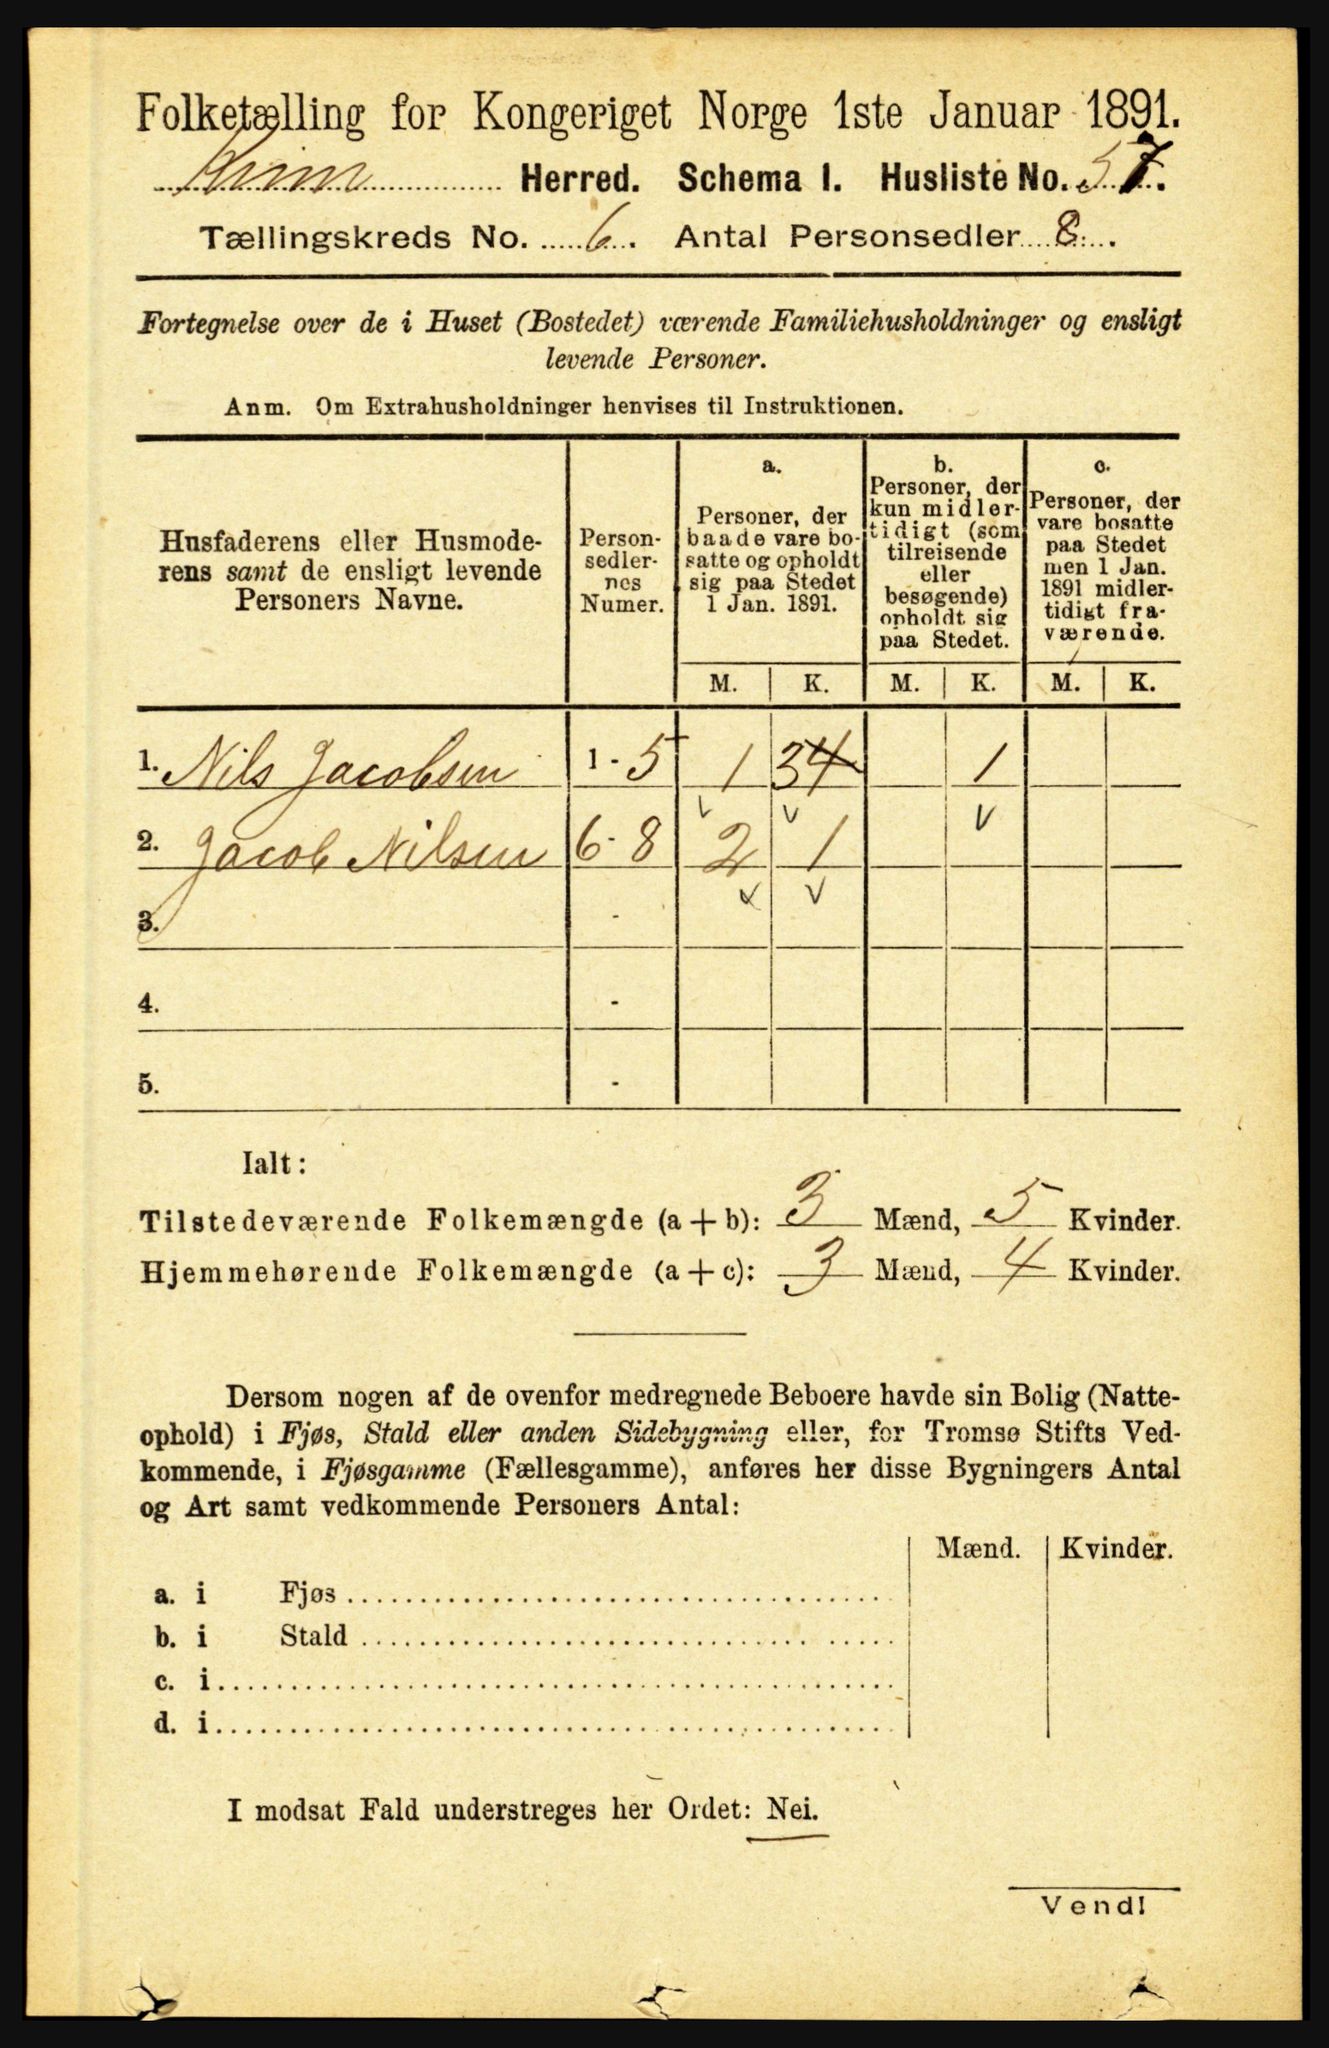 Folketælling for Kongeriget Norge 1ste Januar 1891.
Herred. Schema I. Husliste No. 57.
Tællingskreds No. 6. Antal Personsedler 8.
Fortegnelse over de i Huset (Bostedet) værende Familiehusholdninger og ensligt
levende Personer.
Anm. Om Extrahusholdninger henvises til Instruktionen.
Husfaderens eller Husmode-
rens samt de ensligt levende
Personers Navne.
Person-
sedler-
nes
Numer.
a.
Personer, der
baade vare bo-
satte og opholdt
sig paa Stedet
1 Jan. 1891.
b.
Personer, der
kun midler-
tidigt (som
tilreisende
eller
besøgende)
opholdt sig
paa Stedet.
c.
Personer, der
vare bosatte
paa Stedet
men 1 Jan.
1891 midler-
tidigt fra-
værende.
M. K. M. K. M. K.
1. Nils Jacobsen 1 - 5 1 3 4 1
2. Jacob Nilsen 6 - 8 2 1
3. -
4. -
5. -
Ialt:
Tilstedeværende Folkemængde (a + b): 3 Mænd, 5 Kvinder.
Hjemmehørende Folkemængde (a + c): 3 Mænd, 4 Kvinder.
Dersom nogen af de ovenfor medregnede Beboere havde sin Bolig (Natte-
ophold) i Fjøs, Stald eller anden Sidebygning eller, for Tromsø Stifts Ved-
kommende, i Fjøsgamme (Fællesgamme), anføres her disse Bygningers Antal
og Art samt vedkommende Personers Antal:
Mænd. Kvinder.
a. i Fjøs
b. i Stald
c. i
d. i
I modsat Fald understreges her Ordet: Nei.
Vend!